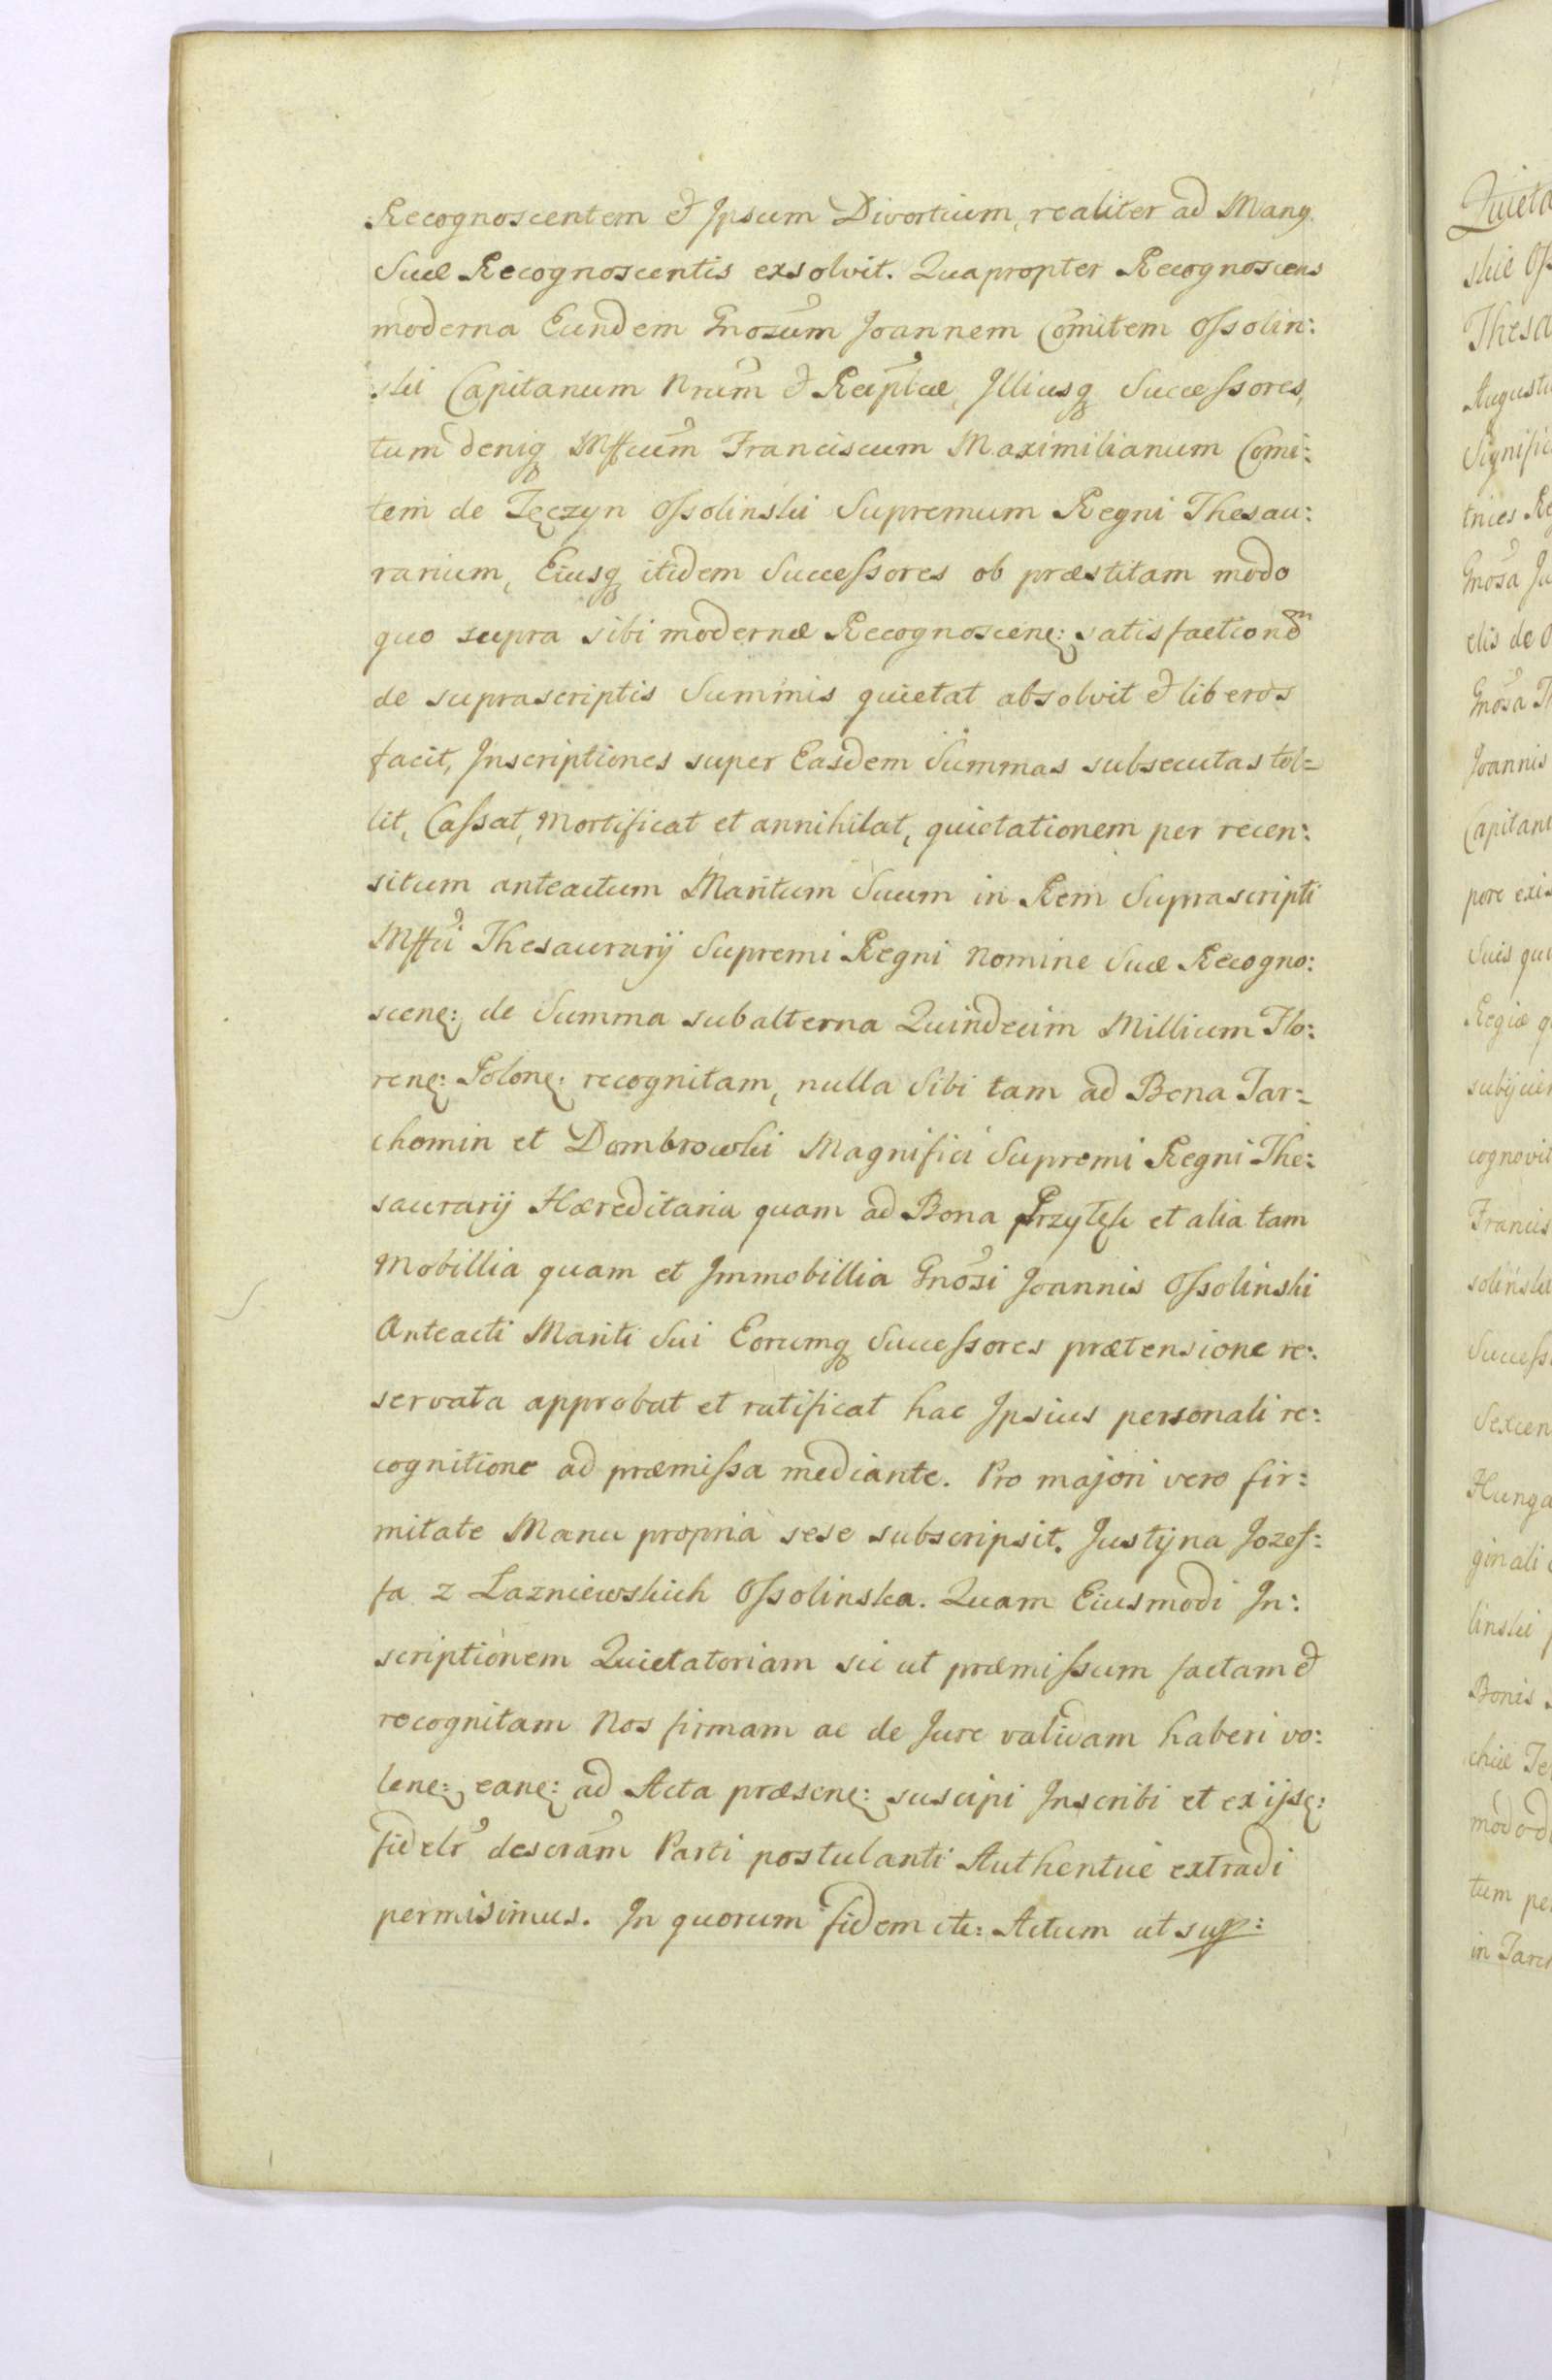 Recognoscentem et Ipsum Divortium, realiter ad Manq
Suæ Recognoscentis exsolvit. Quapropter Recognoscens
moderna Eundem Gnosum Joannem Comitem Ossolin:
ski Capitanum Nrum et Reiplcæ, Illiusq Successores,
tum deniq Mffcum Franciscum Maximilianum Comi:
tem de Tęczyn Ossolinski Supremum Regni Thesau:
rarium, Eiusq itidem Successores ob præstitam modo
quo supra sibi modernæ Recognoscenę: satisfactionem
de suprascriptis Summis quietat absolvit et liberos
facit, Inscriptiones super Easdem Summas subsecutas tol=
lit, Cassat, Mortificat et annihilat, quietationem per recen:
situm anteactum Maritum Suum in Rem Suprascripti
Mffci Thesaurarij Supremi Regni Nomine Suæ Recogno:
scenę: de Summa subalterna Quindecim Millium Flo:
renę: Polonę: recognitam, nulla Sibi tam ad Bona Tar:
chomin et Dombrowki Magnifici Supremi Regni The:
saurarij Hæreditaria quam ad Bona Przytęk et alia tam
Mobillia quam et Immobillia Gnosi Joannis Ossolinski
Anteacti Mariti Sui Eorumq Successores prætensione re:
servata approbat et ratificat hac Ipsius personali re:
cognitione ad præmissa mediante. Pro majori vero fir:
mitate Manu propria sese subscripsit. Justyna Jozef:
fa z Lazniewskich Ossolinska. Quam Eiusmodi In:
scriptionem Quietatoriam sic ut præmissum factam et
recognitam Nos firmam ac de Jure validam haberi vo:
lenę: eanę: ad Acta præsenę: suscipi Inscribi et ex ijsę:
fidelr descram Parti postulanti Authentice extradi
permisimus. In quorum fidem etc: Actum ut sup: